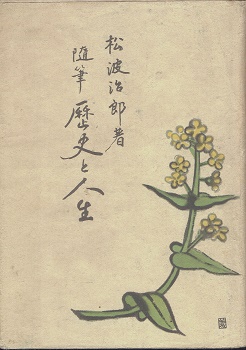 松波治郎著
随筆
歴史と人生